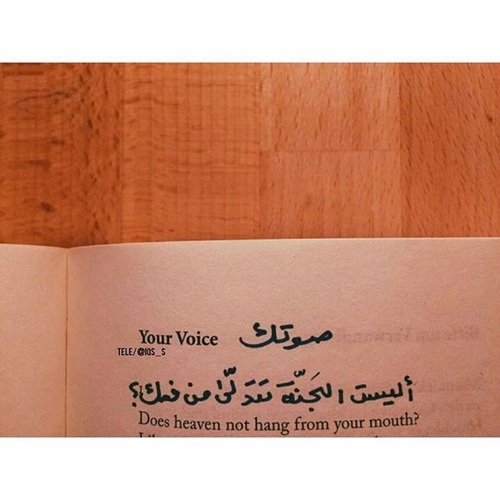 Your Voice صوتك
TELE/@IQS_S
أليست الجَنّة تتدلّىٰ من فمك؟
Does heaven not hang from your mouth?